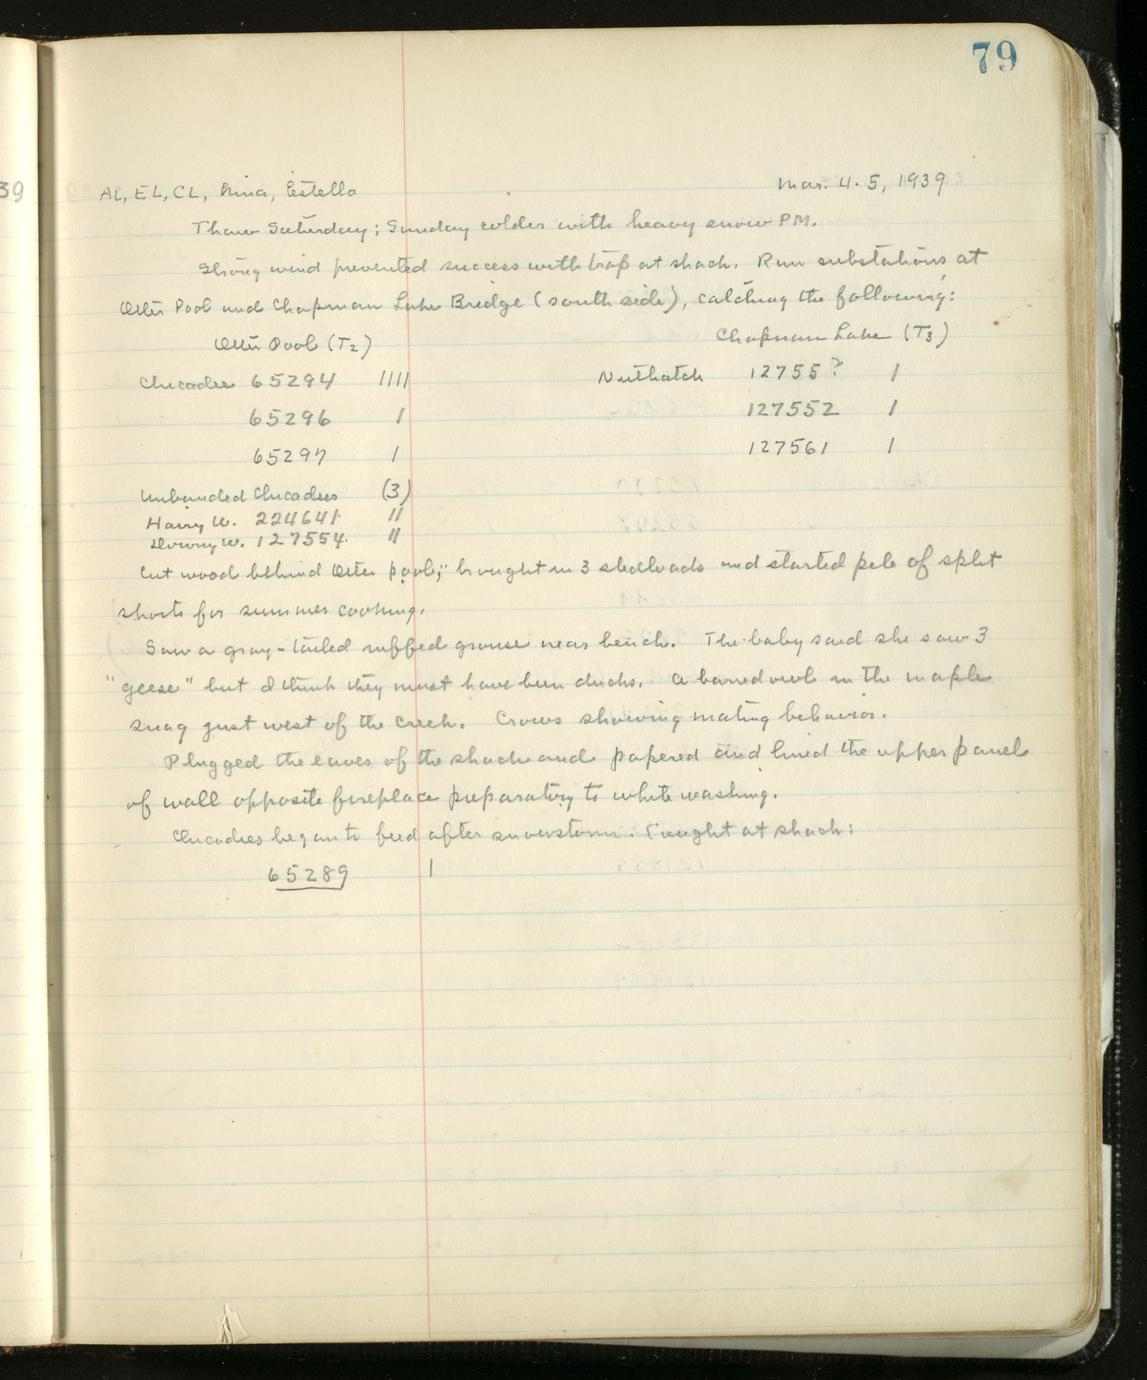 79
39
AL, EL, CL, Nina, Estella Mar. 4-5, 1939
Thaw Saturday; Sunday colder with heavy snow PM.
Strong wind prevented success with trap at shack. Run substations at
Otter Pool and Chapman Lake Bridge (south side), catching the following:
Otter Pool (T2) Chapman Lake (T3)
Chicadee 65294 1111 Nuthatch 12755? 1
65296 1 127552 1
65297 1 127561 1
Unbanded Chicadees (3)
Hairy W. 224641 11
Downy W. 127554 11
Cut wood behind Otter pool; brought in 3 sledloads and started pile of split
shorts for summer cooking.
Saw a gray-tailed ruffed grouse near bench. The baby said she saw 3
"geese" but I think they must have been ducks. A barred owl in the maple
snag just west of the creek. Crows showing mating behavior.
Plugged the eaves of the shack and papered and lined the upper panel
of wall opposite fireplace preparatory to white washing.
Chicadees began to feed after snowstorm. Caught at shack:
65289 1